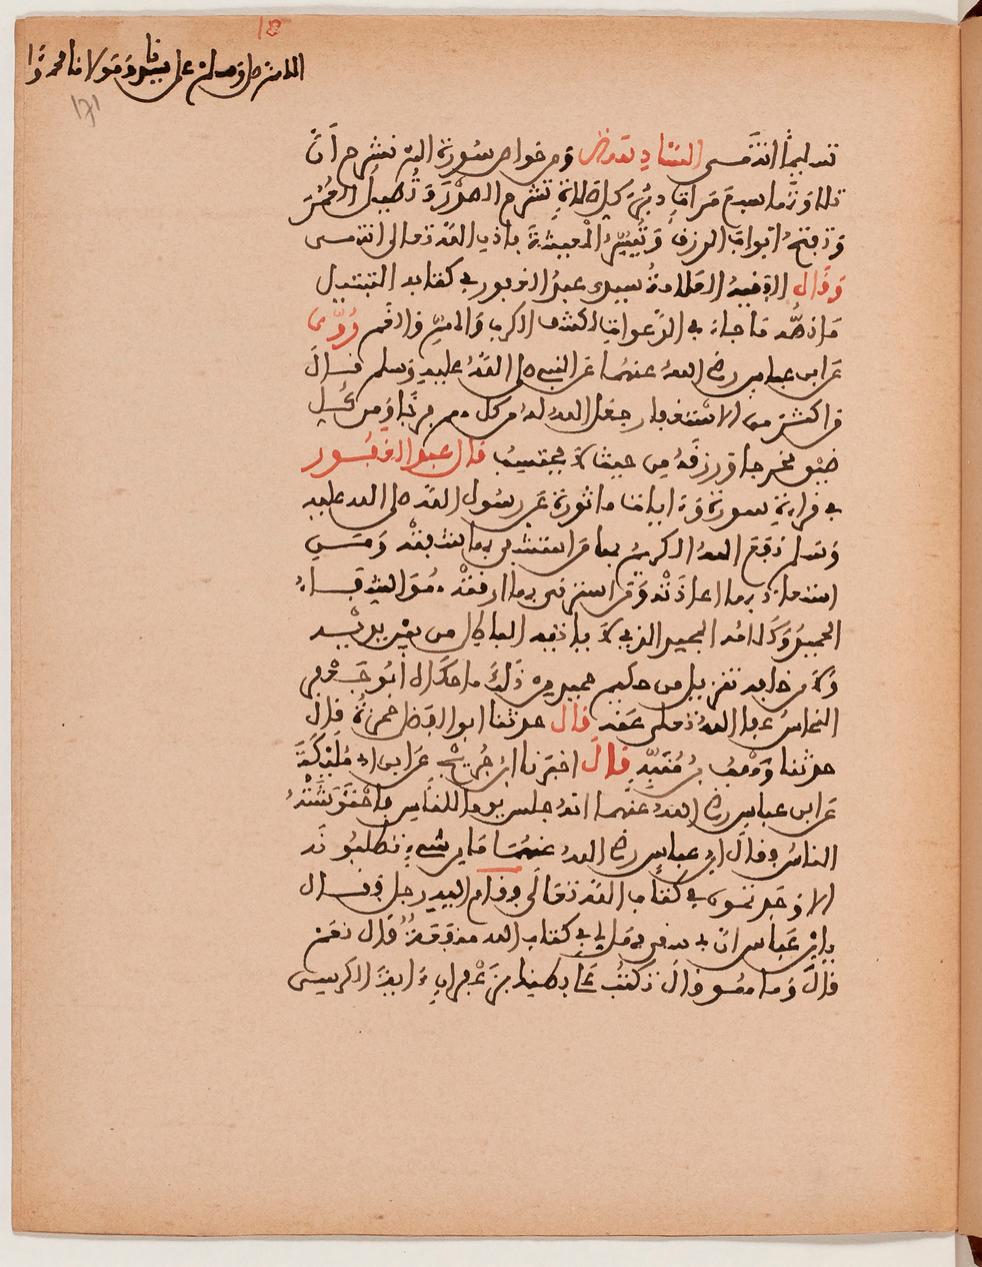 18
اللهم صل وسلم على سيدنا ومولانا محمد وءا
171
تسليما انتهى الشاد بعض ومن خواص سورة الم نشرح ان
تلاوتها سبع مرات دبر كل صلاة تشرح الصدر وتطيل العمر
وتفتح ابواب الرزق وتيسر المعيشة باذن الله تعالى انتهى
وقال الفقيه العلامة سيدي عبد الغفور في كتابه
ما نصه ما جاء في الدعوات لكشف الكرب والهم والغم روي
عن ابن عباس رضي الله عنهما عن النبي صلى الله عليه وسلم قال
من اكثر من الاستغفار جعل الله له من كل هم فرجا ومن كل
ضيق مخرجا ورزقه من حيث لا يحتسب قال عبد الغفور
في قراءة سورة وءايات ماثورة عن رسول الله صلى الله عليه
وسلم رفع الله الكرب بها من استشفى بها شفته ومن
استعاذ بها اعاذته ومن استرقى بها ارقته هو الشفاء
الحميد وكلامه المجيد الذي لا ياتيه الباطل من بين يديه
ولا من خلفه تنزيل من حكيم حميد من ذلك ما حكاه ابو جعفر
النحاس عفا الله تعالى عنه قال حدثنا ابو الفضل حمزة قال
حدثنا وهب بن منبه قال اخبرنا ابن جريج عن ابن ابي مليكة
عن ابن عباس رضي الله عنهما انه جلس يوما للناس فاحتوشته
الناس فقال ابن عباس رضي الله عنهما ما من شيء تطلبونه
الا وجدتموه في كتاب الله تعالى فقام اليه رجل فقال
يابن عباس ان في سفري هل لي في كتاب الله منفعة قال نعم
قال وما هو قال تكتب على بطنها بزعفران ءاية الكرسي